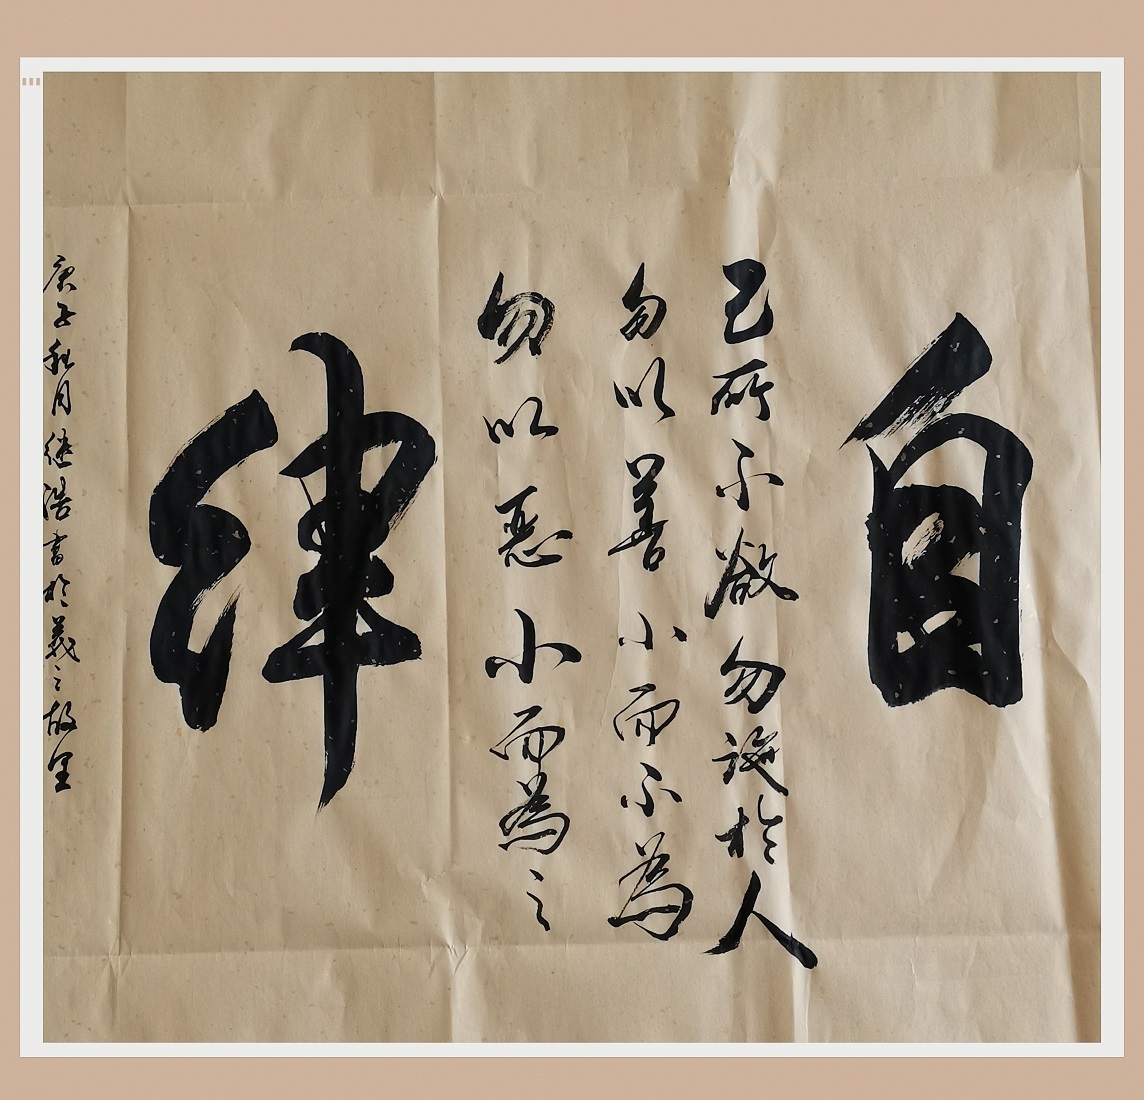 自
己所不欲勿施於人
勿以善小而不為
勿以惡小而為之
律
庚子秋月继浩書於羲之故里